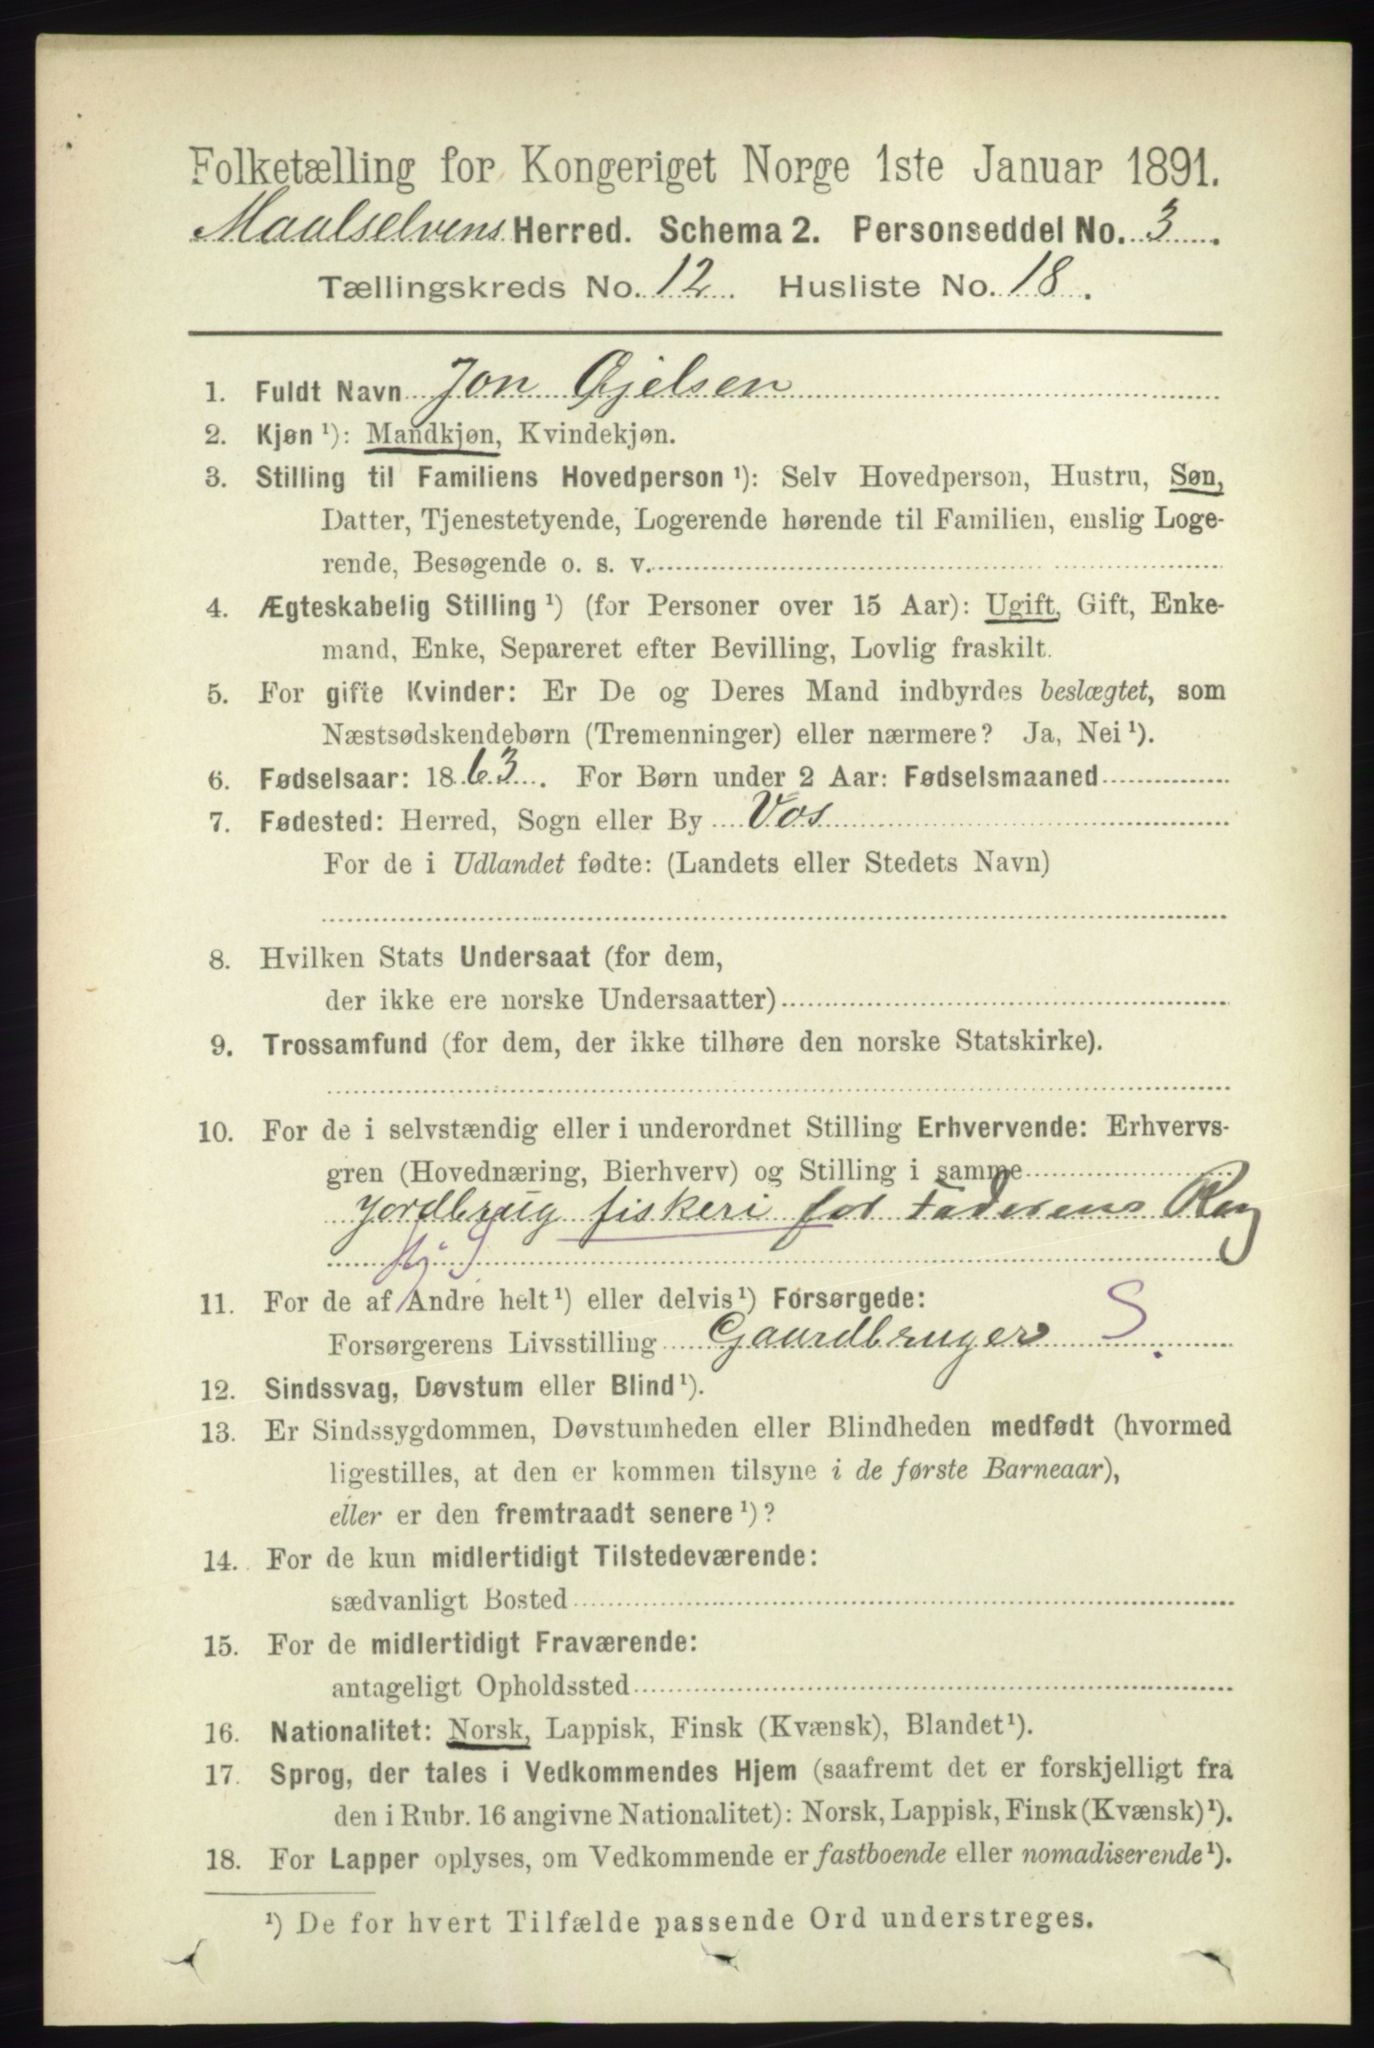 Folketælling for Kongeriget Norge 1ste Januar 1891.
Maalselvens Herred. Schema 2. Personseddel No. 3.
Tællingskreds No. 12. Husliste No. 18.
1. Fuldt Navn Jon Øjelsen
2. Kjøn ¹): Mandkjøn, Kvindekjøn.
3. Stilling til Familiens Hovedperson ¹): Selv Hovedperson, Hustru, Søn,
Datter, Tjenestetyende, Logerende hørende til Familien, enslig Loge-
rende, Besøgende o. s. v.
4. Ægteskabelig Stilling ¹) (for Personer over 15 Aar): Ugift, Gift, Enke-
mand, Enke, Separeret efter Bevilling, Lovlig fraskilt.
5. For gifte Kvinder: Er De og Deres Mand indbyrdes beslægtet, som
Næstsødskendebørn (Tremenninger) eller nærmere? Ja, Nei ¹).
6. Fødselsaar: 1863. For Børn under 2 Aar: Fødselsmaaned
7. Fødested: Herred, Sogn eller By Vos
For de i Udlandet fødte: (Landets eller Stedets Navn)
8. Hvilken Stats Undersaat (for dem,
der ikke ere norske Undersaatter)
9. Trossamfund (for dem, der ikke tilhøre den norske Statskirke).
10. For de i selvstændig eller i underordnet Stilling Erhvervende: Erhvervs-
gren (Hovednæring, Bierhverv) og Stilling i samme
Jordbrug fiskeri for Faderens
11. For de af Andre helt ¹) eller delvis ¹) Forsørgede:
Forsørgerens Livsstilling Gaardbruger S.
12. Sindssvag, Døvstum eller Blind ¹).
13. Er Sindssygdommen, Døvstumheden eller Blindheden medfødt (hvormed
ligestilles, at den er kommen tilsyne i de første Barneaar),
eller er den fremtraadt senere ¹)?
14. For de kun midlertidigt Tilstedeværende:
sædvanligt Bosted
15. For de midlertidigt Fraværende:
antageligt Opholdssted
16. Nationalitet: Norsk, Lappisk, Finsk (Kvænsk), Blandet ¹).
17. Sprog, der tales i Vedkommendes Hjem (saafremt det er forskjelligt fra
den i Rubr. 16 angivne Nationalitet): Norsk, Lappisk, Finsk (Kvænsk) ¹).
18. For Lapper oplyses, om Vedkommende er fastboende eller nomadiserende ¹).
¹) De for hvert Tilfælde passende Ord understreges.